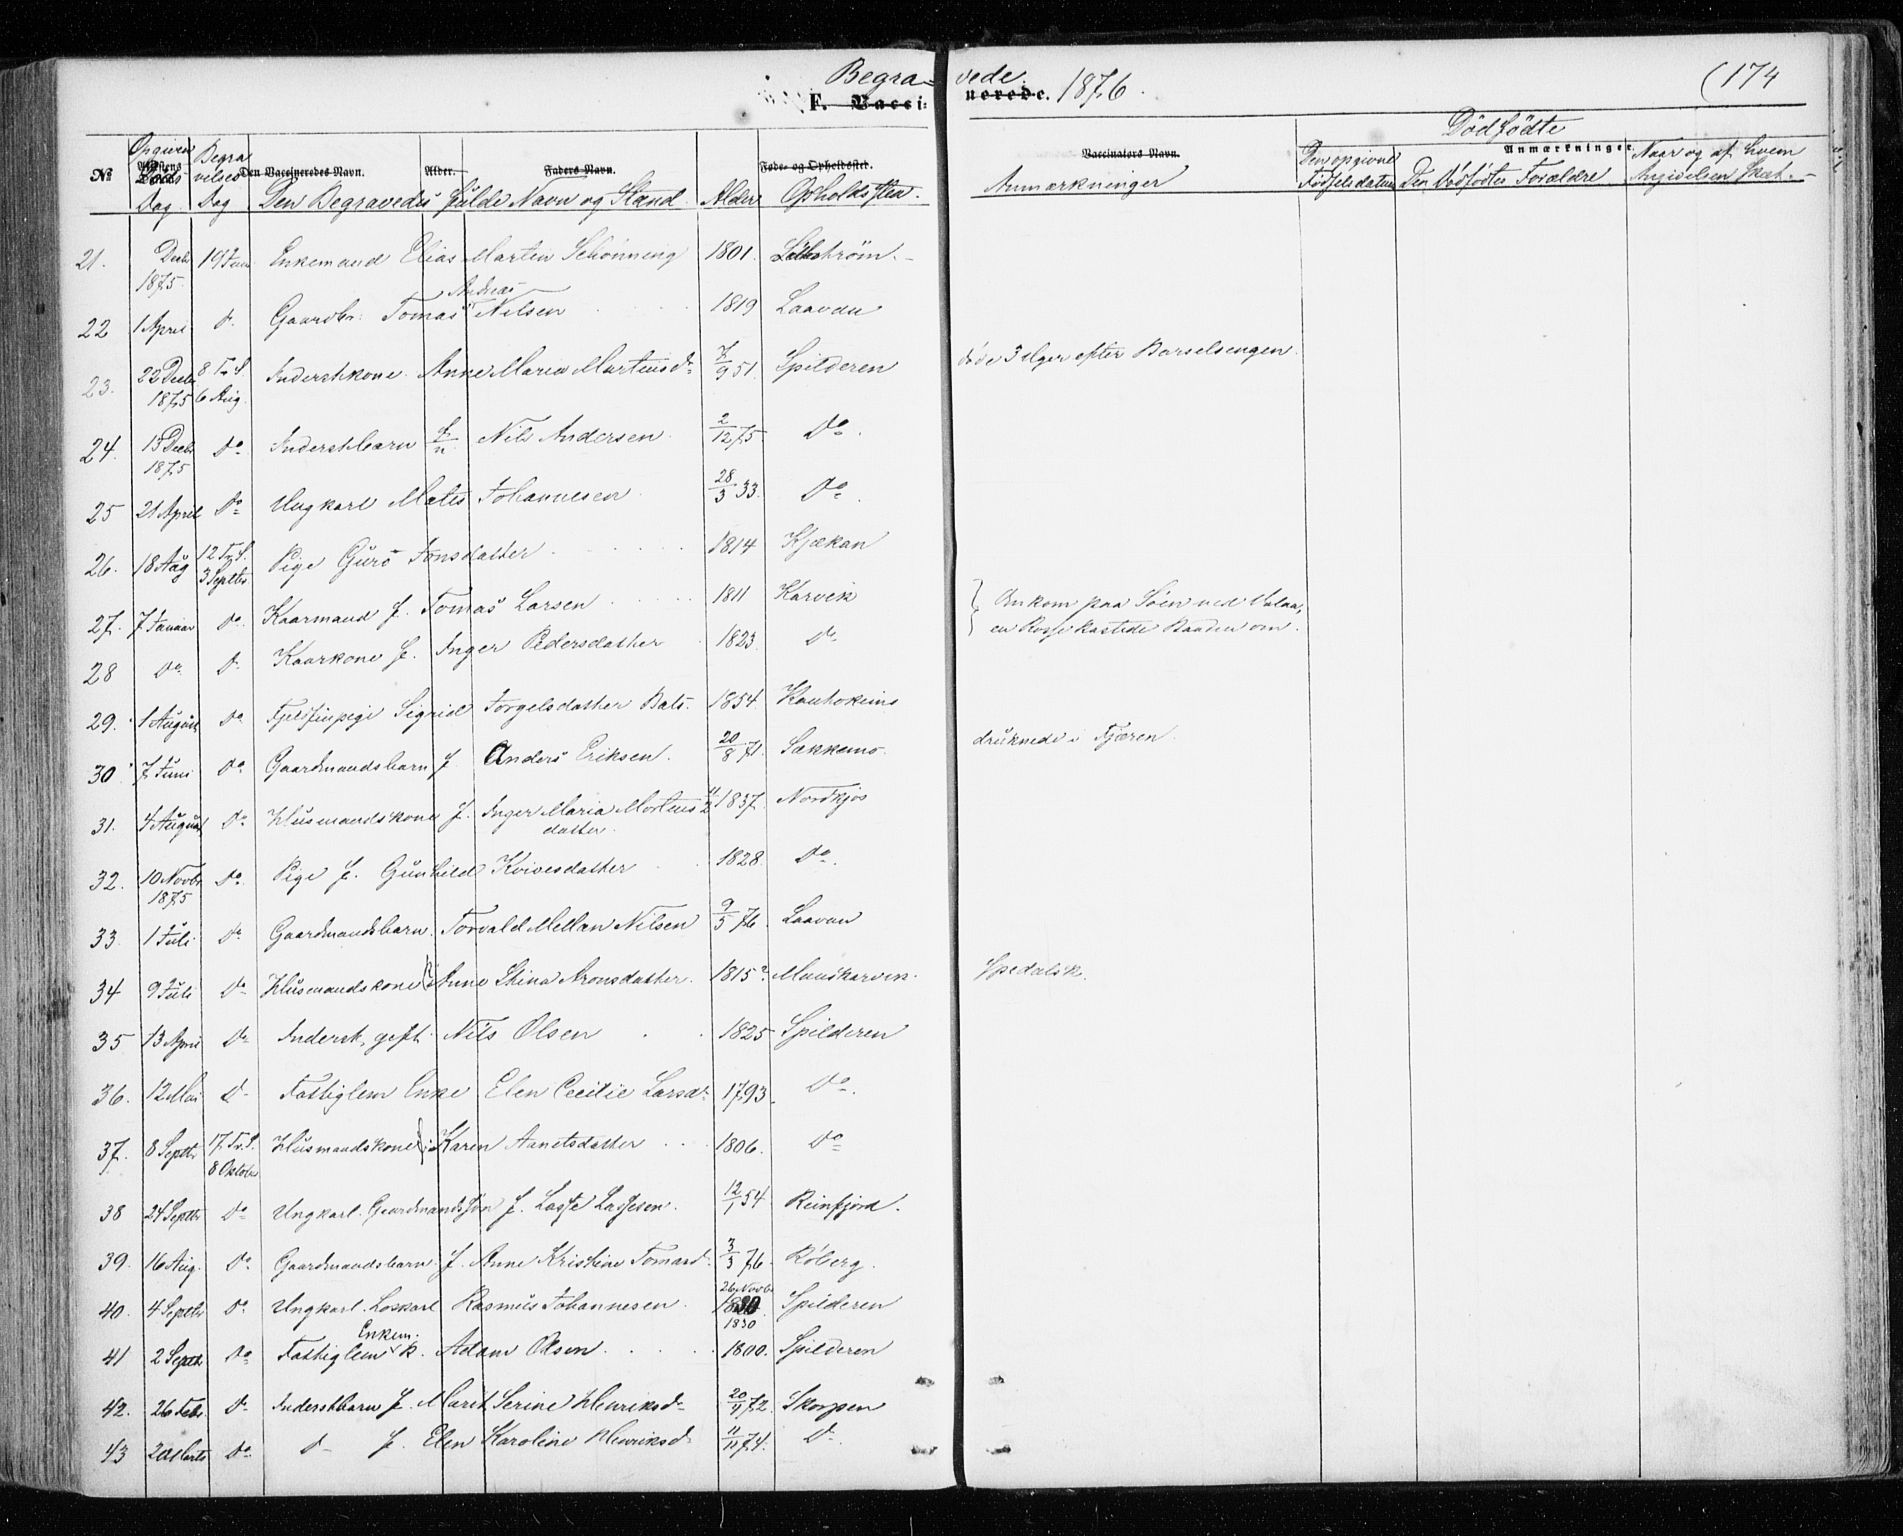 Begravede. 1876. (174
F. Vaccinerede.
Opgiven Begra Dødfødte
No Døds velses Den Vaccineredes Navn. Alder. Faders Navn. Føde- og Opholdssted. Vaccinators Navn. Anmærkninger.
Dag. Dag Den Begravedes fulde Navn og Stand. Alder Opholdssted. Anmærkninger Den opgivne Fødselsdatum Den Dødfødtes Forældre Naar og af hvem Angivelsen skeet.
21. Decbr 1875 19 Juni Enkemand Elias Martin Schønning 1801.
22 1 April do. Gaardbr. Tomas Andreas Nilsen 1819 Laavan
23. 22 Decbr 1875 8 Tr. S. 6 Aug. Inderstkone. Anne Maria Martinsd. 7/9 51. Spilderen døde 3 Uger efter Barselsengen.
24. 13 Decbr 1875 Do Inderstbarn Nils Andersen. 2/12 75. Do.
25 21 April Do Ungkarl Mates Johannesen 28/3 33. Do.
26. 18 Aug 12 Tr. S. 3 Septbr Pige Guro Jonsdatter 1814 Kjækan
27. 7 Januar Do. Kaarmand f. Tomas Larsen 1811 Karvik } Omkom paa Søen ved
28 Do. D. Kaarkone f. Inger Pedersdatter 1823 Do. } en Rosse kastede Baaden om.
29. 1 August Do Fjeldfinpige Sigrid Torgelsdatter Bals. 1854 Kautokeino
30. 7 Juni Do Gaardmandsbarn f Anders Eriksen. 20/8 71. Sakkemo druknede i Fjæren.
31. 4 August Do Husmandskone f. Inger Maria Mortensdatter. 11/2 1837. Nordkjos
32. 10 Novbr 1875 Do. Pige f. Gunhild Kvivesdatter 1828. Do.
33. 1 Juli Do Gaardmandsbarn. Torvald Mellan Nilsen 9/5 76. Laavan
34 9 Juli Do Husmandskone Anne Stina Aronsdatter. 1815? Mauskarvik. Spedalsk.
35 13 April Do Inderst, gift. Nils Olsen 1825 Spilderen
36. 12 Mai D. Fattiglem Enke Elen Cecilie Larsd. 1793. Do.
37. 8 Septbr 17. Tr. S. 8 Oktober Husmandskone f. Karen Aanetsdatter 1806. Do
38 24 Septbr Do Ungkarl. Gaardmandssøn f. Lasse Lassesen. 12/1 54 Reinfjord.
39. 16 Aug. Do. Gaardmandsbarn. f. Anne Kristine Tomasd. 3/3 76. Røberg.
40. 4 Septbr Do Ungkarl. Loskarl Rasmus Johannesen 26 Novbr 1830 1830 Spilderen
41 2 Septb. Do Fattiglem Enkem. k. Adam Olsen 1800. Spilderen
42. 26 Febr. Do Inderstbarn f. Marit Serine Henriksd. 20/9 72. Skorpen
43 20 Marts Do D. f. Elen Karoline Henriksd. 11/11 74. D.